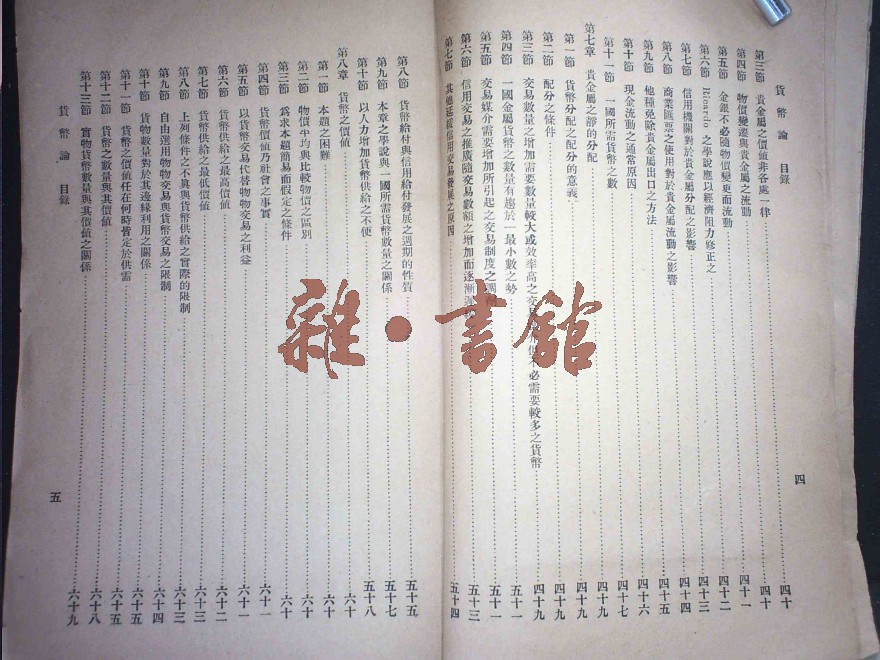 貨幣論 目錄
第三節 貴金屬之價值非各處一律 四十
第四節 物價變遷與貴金屬之流動 四十一
第五節 金銀不必隨物價變更而流動 四十二
第六節 Ricardo 之學說應以經濟阻力修正之 四十三
第七節 信用機關對於貴金屬分配之影響 四十四
第八節 商業匯票之使用對於貴金屬流動之影響 四十五
第九節 他種免除貴金屬出口之方法 四十六
第十節 現金流動之通常原因 四十七
第十一節 一國所需貨幣之數 四十九
第七章 貴金屬之靜的分配 四十九
第一節 貨幣分配之配分的意義 四十九
第二節 配分之條件 四十九
第三節 交易數量之增加需要數量較大或效率高之交易 必需要較多之貨幣 四十九
第四節 一國金屬貨幣之數量有趨於一最小數之勢 五十一
第五節 交易媒介需要增加所引起之交易制度之 五十一
第六節 信用交易之推廣隨交易數額之增加而逐漸 五十三
第七節 其他延緩信用交易發展之原因 五十四
四
第八節 貨幣給付與信用給付發展之週期的性質 五十五
第九節 本章之學說與一國所需貨幣數量之關係 五十七
第十節 以人力增加貨幣供給之不便 五十八
第八章 貨幣之價值 六十
第一節 本題之困難 六十
第二節 物價平均與比較物價之區別 六十
第三節 為求本題簡易而假定之條件 六十
第四節 貨幣價值乃社會之事實 六十一
第五節 以貨幣交易代替物物交易之利益 六十一
第六節 貨幣供給之最高價值 六十二
第七節 貨幣供給之最低價值 六十三
第八節 上列條件之不眞與貨幣供給之實際的限制 六十三
第九節 自由選用物物交易與貨幣交易之限制 六十四
第十節 貨物數量對於其邊緣利用之關係 六十五
第十一節 貨幣之價值任在何時皆定於供需 六十五
第十二節 貨幣之數量與其價值 六十八
第十三節 實物貨幣數量與其價值之關係 六十九
貨幣論 目錄
五
雜·書館